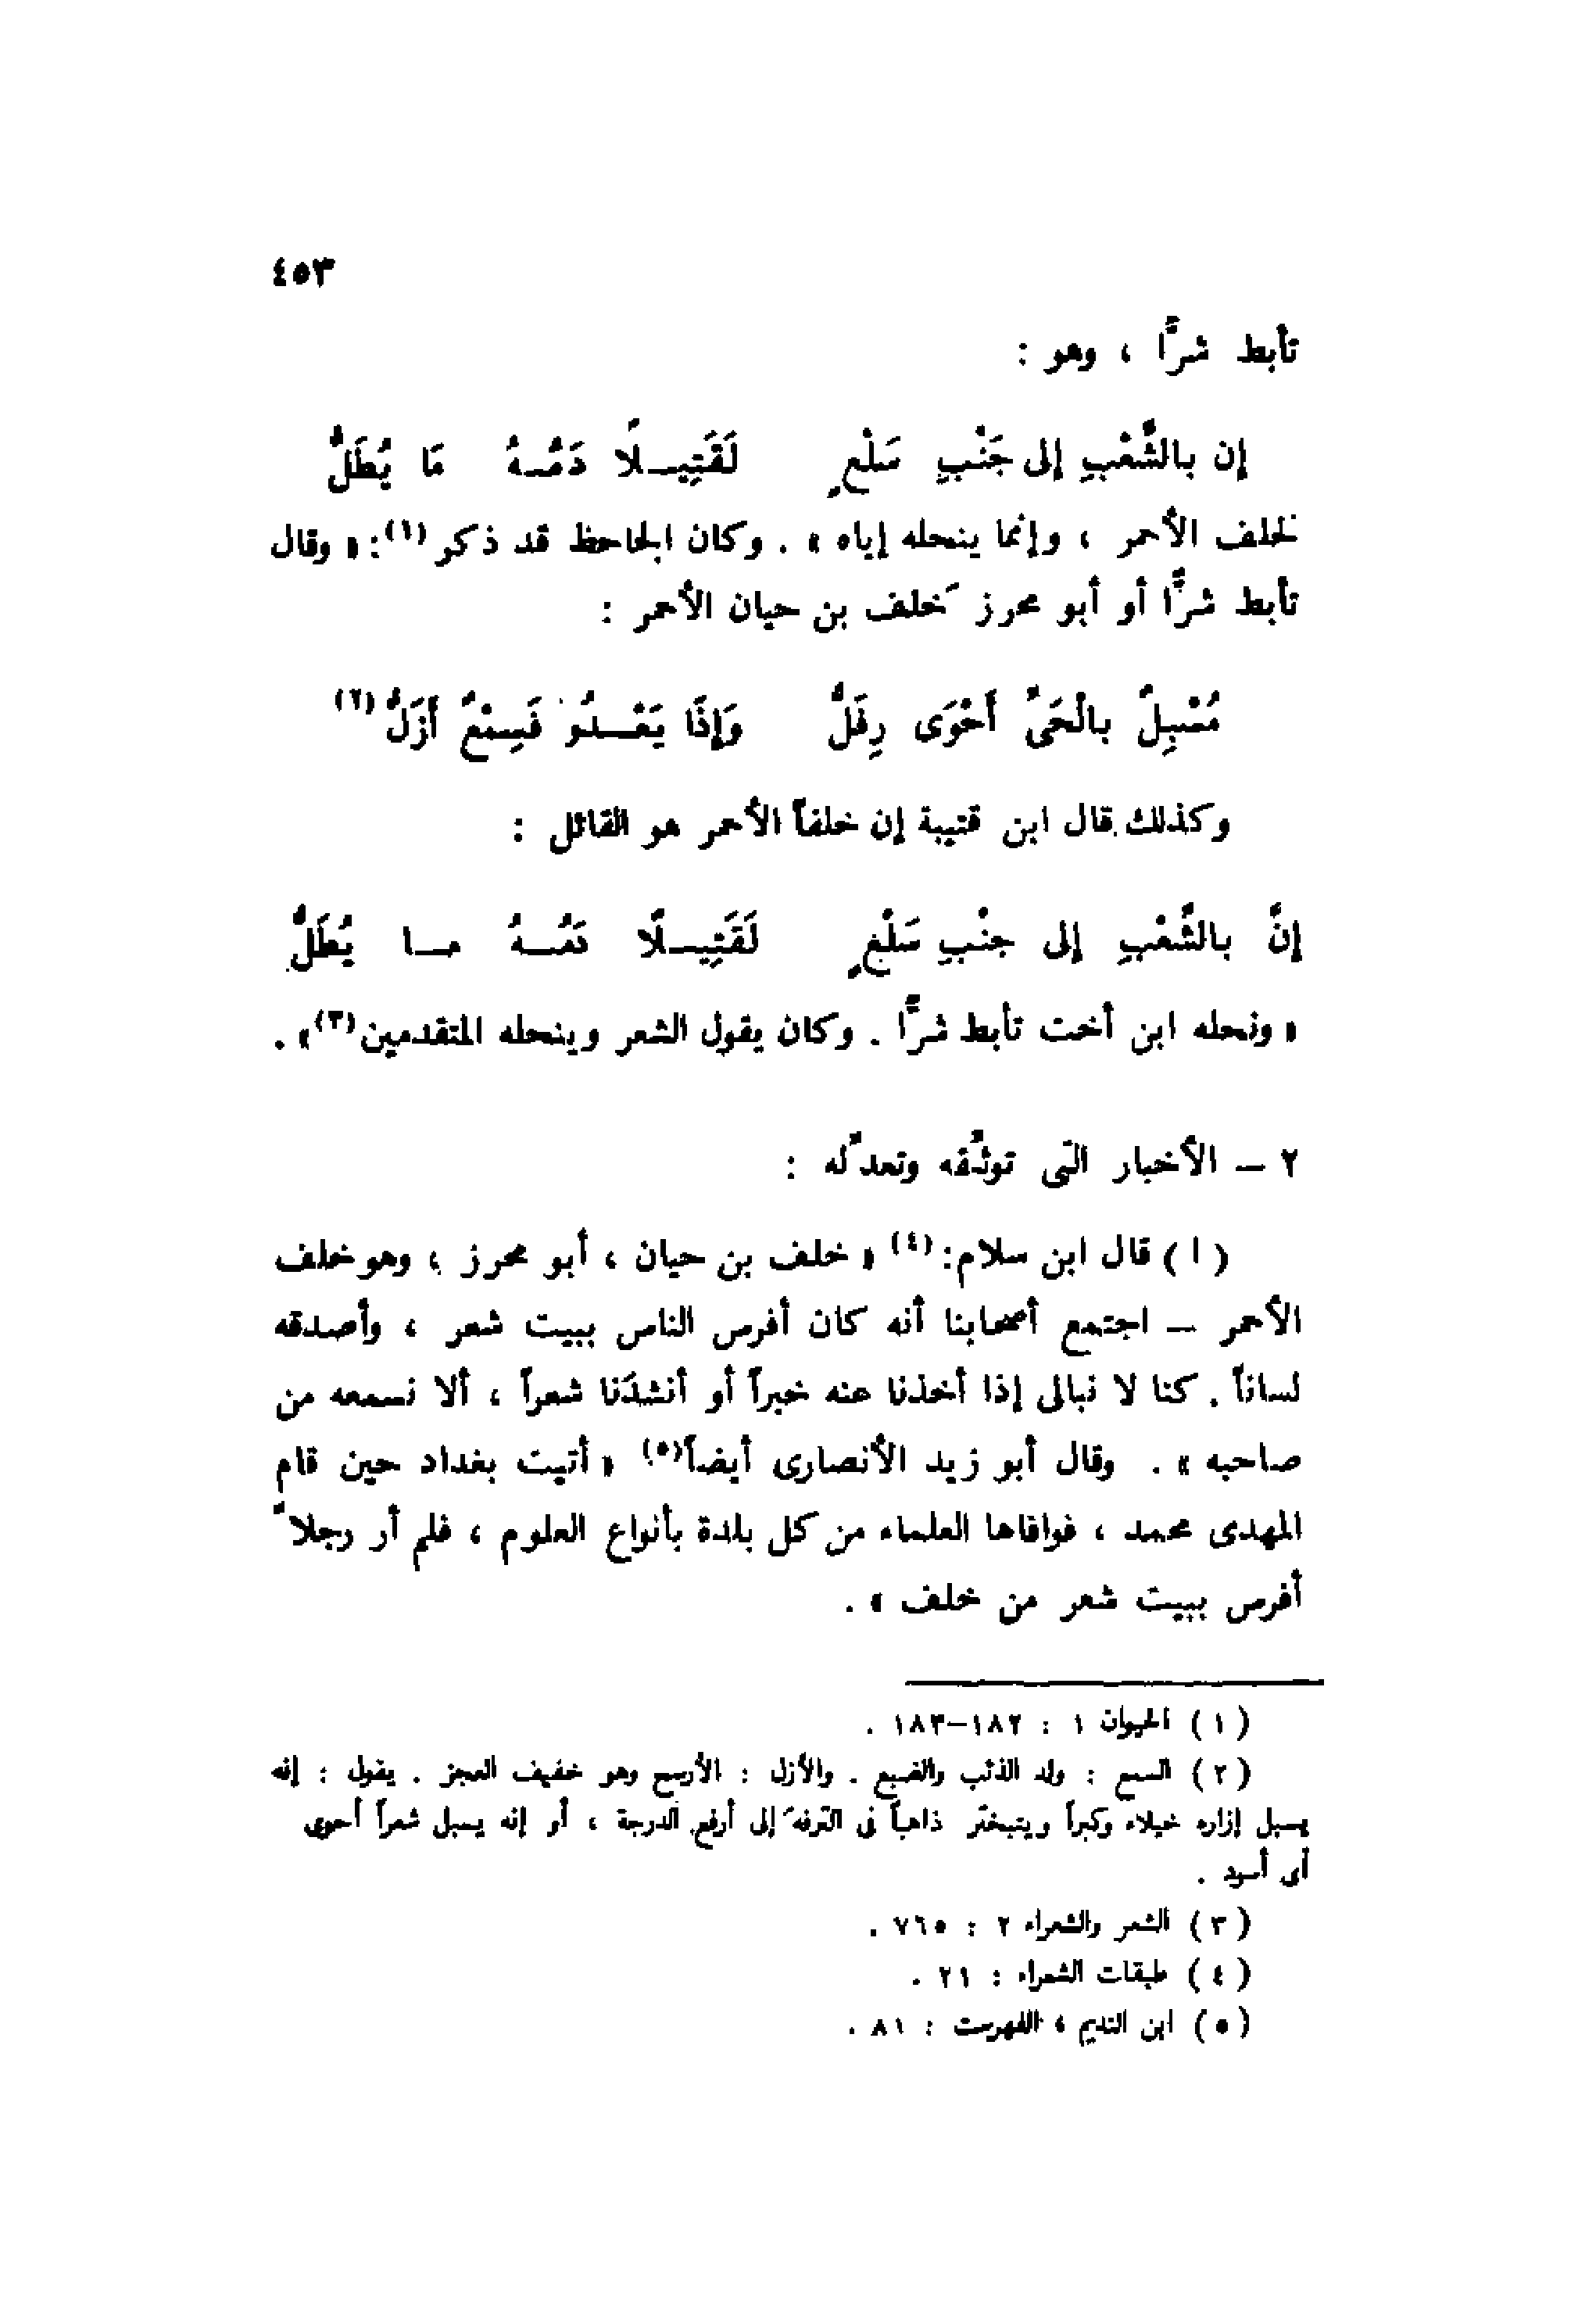 ٤٥٣
تأبط شرًّا ، وهو :
إن بالشَّعْبِ إلى جَنْبِ سَلْعٍ لَقَتِيـلًا دَمُـهُ مَا يُطَلُّ
لخلف الأحمر ، وإنما ينحله إياه » . وكان الجاحظ قد ذكر(١): « وقال
تأبط شرًّا أو أبو محرز خَلف بن حيان الأحمر :
مُسْبِلٌ بالْحَىِّ أَحْوَى رِفَلٌّ وَإِذَا يَعْـدُو فَسِمْعٌ أَزَلُّ(٢)
وكذلك قال ابن قتيبة إن خلفاً الأحمر هو القائل :
إنَّ بالشَّعْبِ إلى جنْبِ سَلْعٍ لَقَتِيـلًا دَمُـهُ مـا يُطَلُّ
« ونحله ابن أخت تأبط شرًّا . وكان يقول الشعر وينحله المتقدمين(٣)» .
٢ – الأخبار التى توثِّقه وتعدِّله :
( ا ) قال ابن سلام:(٤) « خلف بن حيان ، أبو محرز ، وهو خلف
الأحمر – اجتمع أصحابنا أنه كان أفرس الناس ببيت شعر ، وأصدقه
لساناً . كنا لا نبالى إذا أخذنا عنه خبراً أو أنشدَنا شعراً ، ألا نسمعه من
صاحبه » . وقال أبو زيد الأنصارى أيضاً(٥) « أتيت بغداد حين قام
المهدى محمد ، فوافاها العلماء من كل بلدة بأنواع العلوم ، فلم أر رجلاً
أفرس ببيت شعر من خلف » .
( ١ ) الحيوان ١ : ١٨٢–١٨٣ .
( ٢ ) السمع : ولد الذئب والضبع . والأزل : الأرسح وهو خفيف العجز . يقول : إنه
يسبل إزاره خيلاء وكبراً ويتبختر ذاهباً فى الترفه إلى أرفع الدرجة ، أو إنه يسبل شعراً أحوى
أى أسود .
( ٣ ) الشعر والشعراء ٢ : ٧٦٥ .
( ٤ ) طبقات الشعراء : ٢١ .
( ٥ ) ابن النديم ، الفهرست : ٨١ .